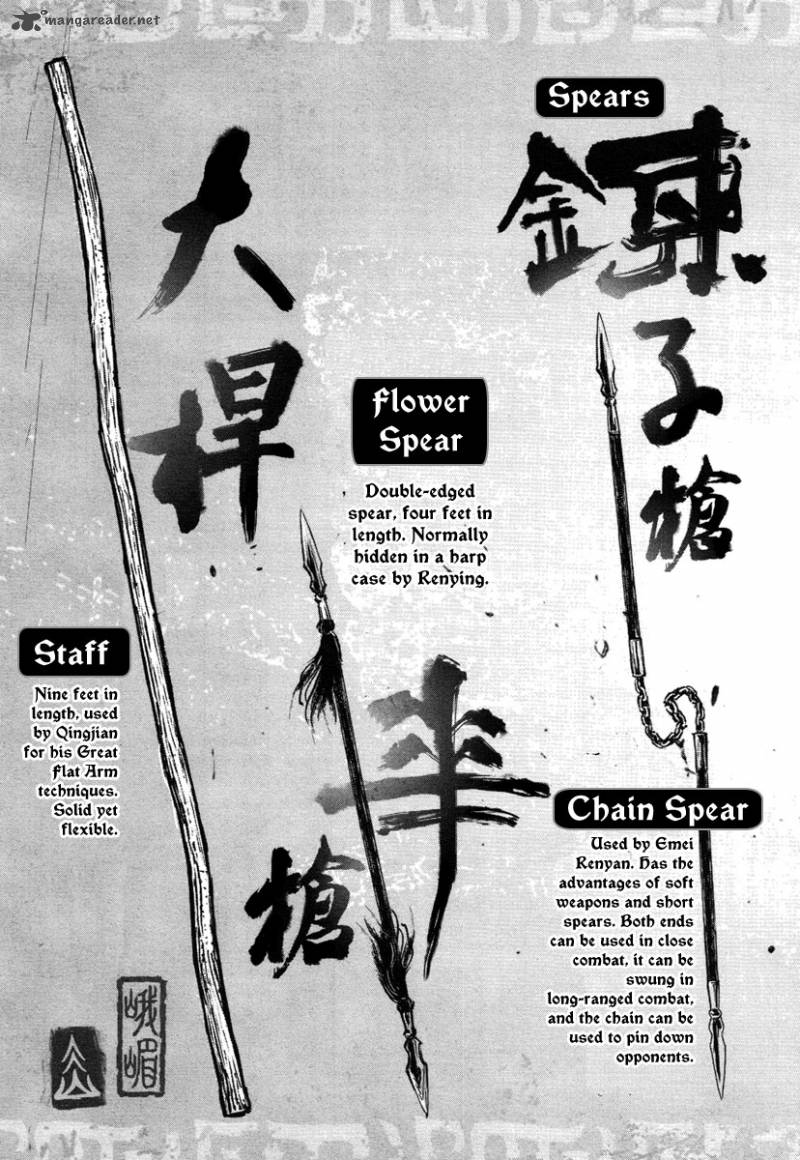 mangareader.net
Spears
大
桿
子
槍
Flower
Spear
Double-edged
spear, four feet in
length. Normally
hidden in a harp
case by Renying.
Staff
Nine feet in
length, used
by Qingjian
for his Great
Flat Arm
techniques.
Solid yet
flexible.
槍
Chain Spear
Used by Emei
Renyan. Has the
advantages of soft
weapons and short
spears. Both ends
can be used in close
combat, it can be
swung in
long-ranged combat,
and the chain can be
used to pin down
opponents.
峨
嵋